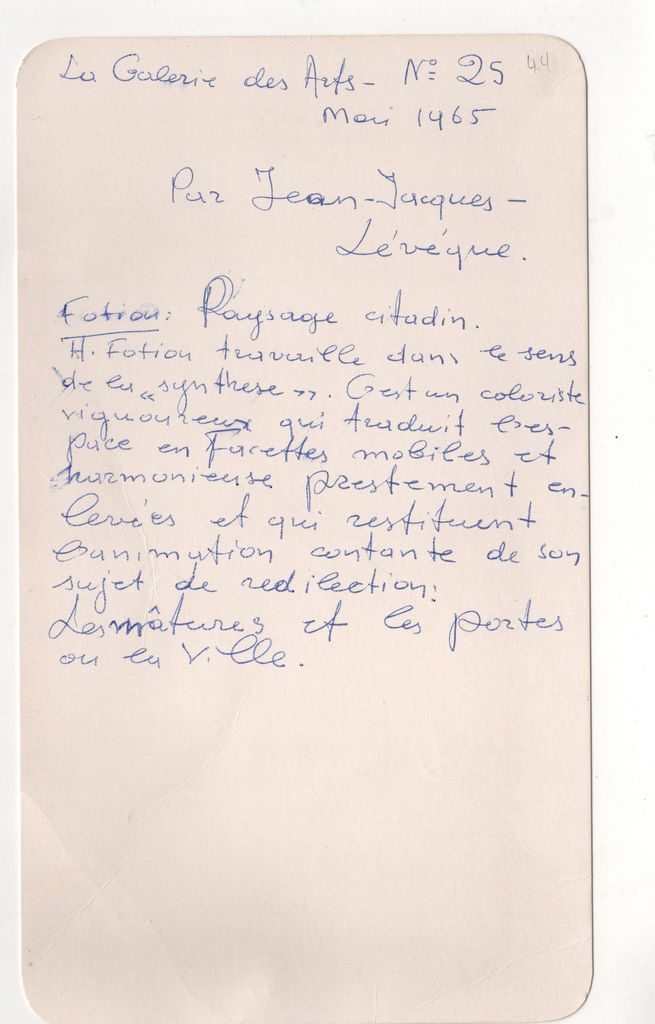 La Galerie des Arts - Nº 25 44
Mai 1965
Par Jean-Jacques -
Lévéque.
Fotion: Paysage citadin.
H. Fotion travaille dans le sens
de la « synthese ». C'est un coloriste
vignoureux qui traduit l'es-
pace en Facettes mobiles et
harmonieuse prestement en-
levées et qui restituent
l'animation contante de son
sujet de redilection:
Les mâtures et les portes
ou la Ville.